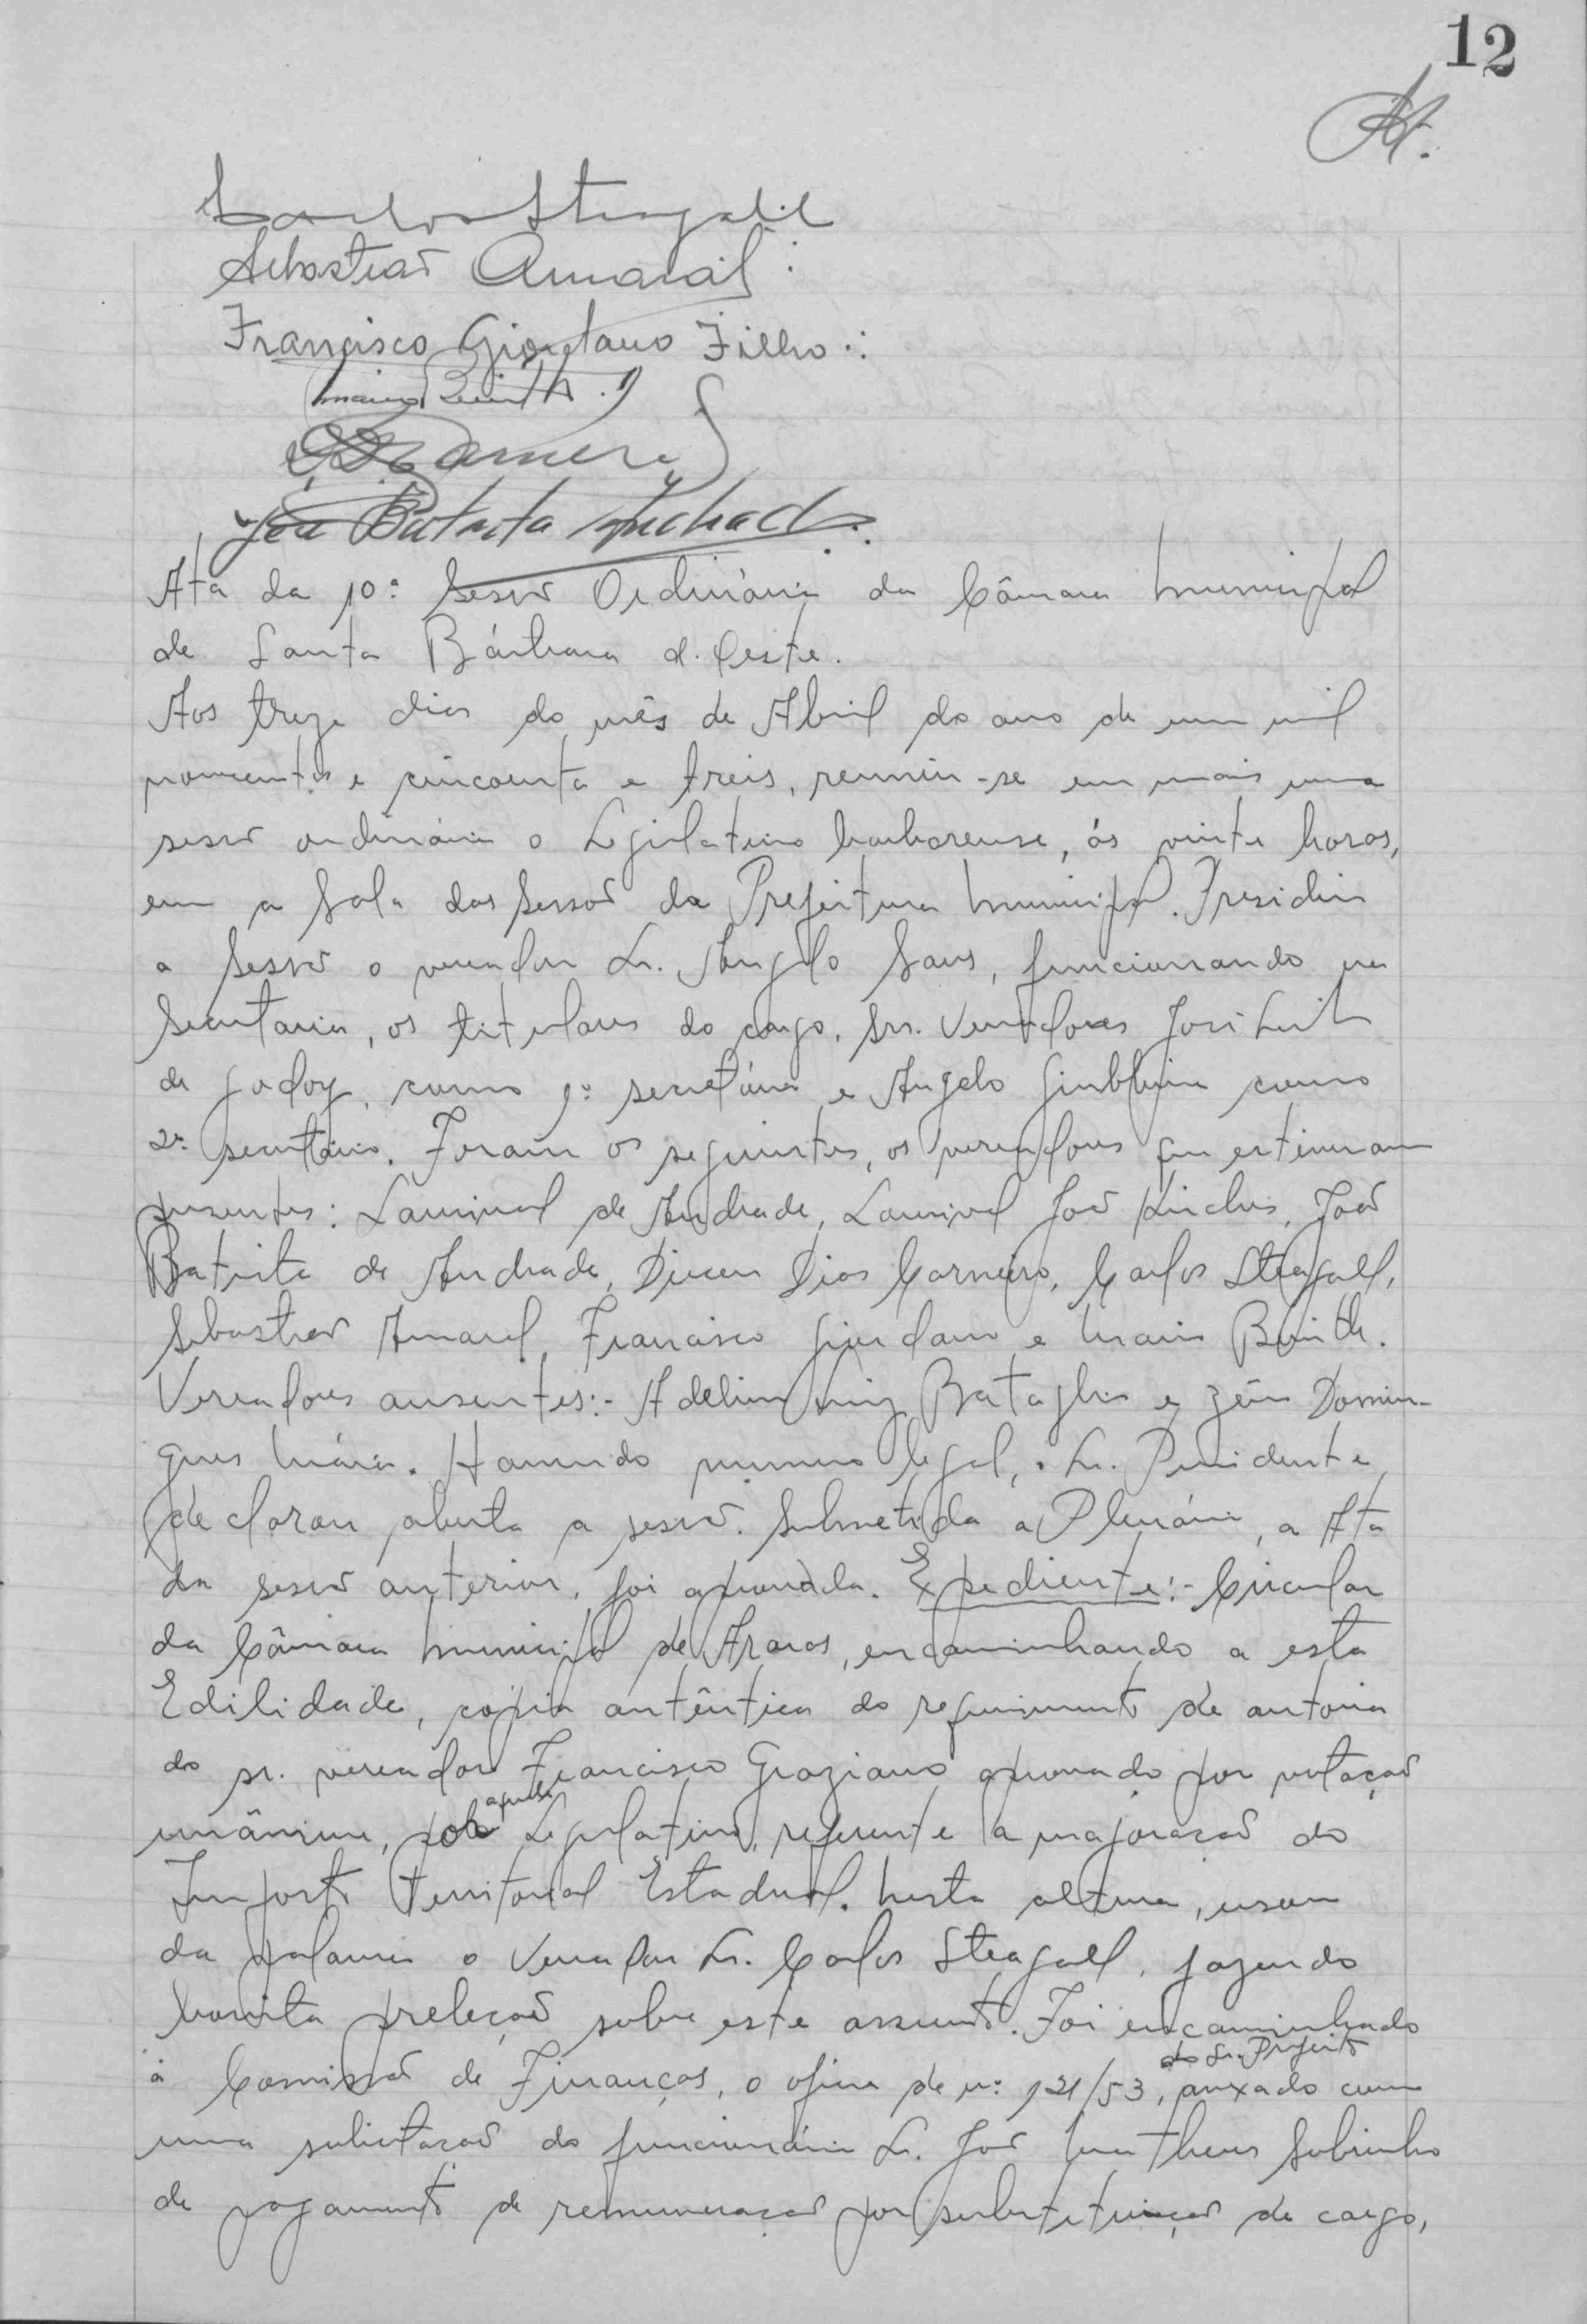 12
Carlos Steagall
Sebastião Amaral
Francisco Giordano Filho
João Batista Andrade
Ata da 10ª Sessão Ordinária da Câmara Municipal
de Santa Bárbara d. Oeste.
Aos treze dias do mês de Abril do ano de um mil
novecentos e cincoenta e treis, reuniu-se em mais uma
sessão ordinária o Legislativo barbarense, ás vinte horas,
em a Sala das Sessões da Prefeitura Municipal. Presidiu
a Sessão o vereador Sr. Angelo Sans, funcionando na
Secretaria, os titulares do cargo, Srs. Vereadores José Luiz
de Godoy, como 1º secretário e Angelo Giubbina como
2º secretário. Foram os seguintes, os vereadores que estiveram
presentes: Laurival de Andrade, Laurival João, João
Batista de Andrade, Dirceu Dias Carneiro, Carlos Steagall,
Sebastião Amaral, Francisco Giordano e Mario
Vereadores ausentes:- Adelino Luiz Bataglia e Zênio Domin-
gues Maia. Havendo numero legal, o Sr. Presidente
declarou aberta a sessão. Submetida a Plenário, a Ata
da sessão anterior, foi aprovada. Expediente:- Circular
da Câmara Municipal de Araras, encaminhando a esta
Edilidade, copia autêntica do requerimento de autoria
do sr. vereador Francisco Graziano aprovado por votação
unânime, por aquele Legislativo, referente a majoração do
Imposto Territorial Estadual. Nesta altura, usou
da palavra o Vereador Sr. Carlos Steagall, fazendo
bonita preleção sobre este assunto. Foi encaminhado
á Comissão de Finanças, o oficio de nº 121/53, do Sr. Prefeito anexado com
uma solicitação do funcionário Sr. João Matheus Sobrinho
de pagamento de remuneração por substituição de cargo,